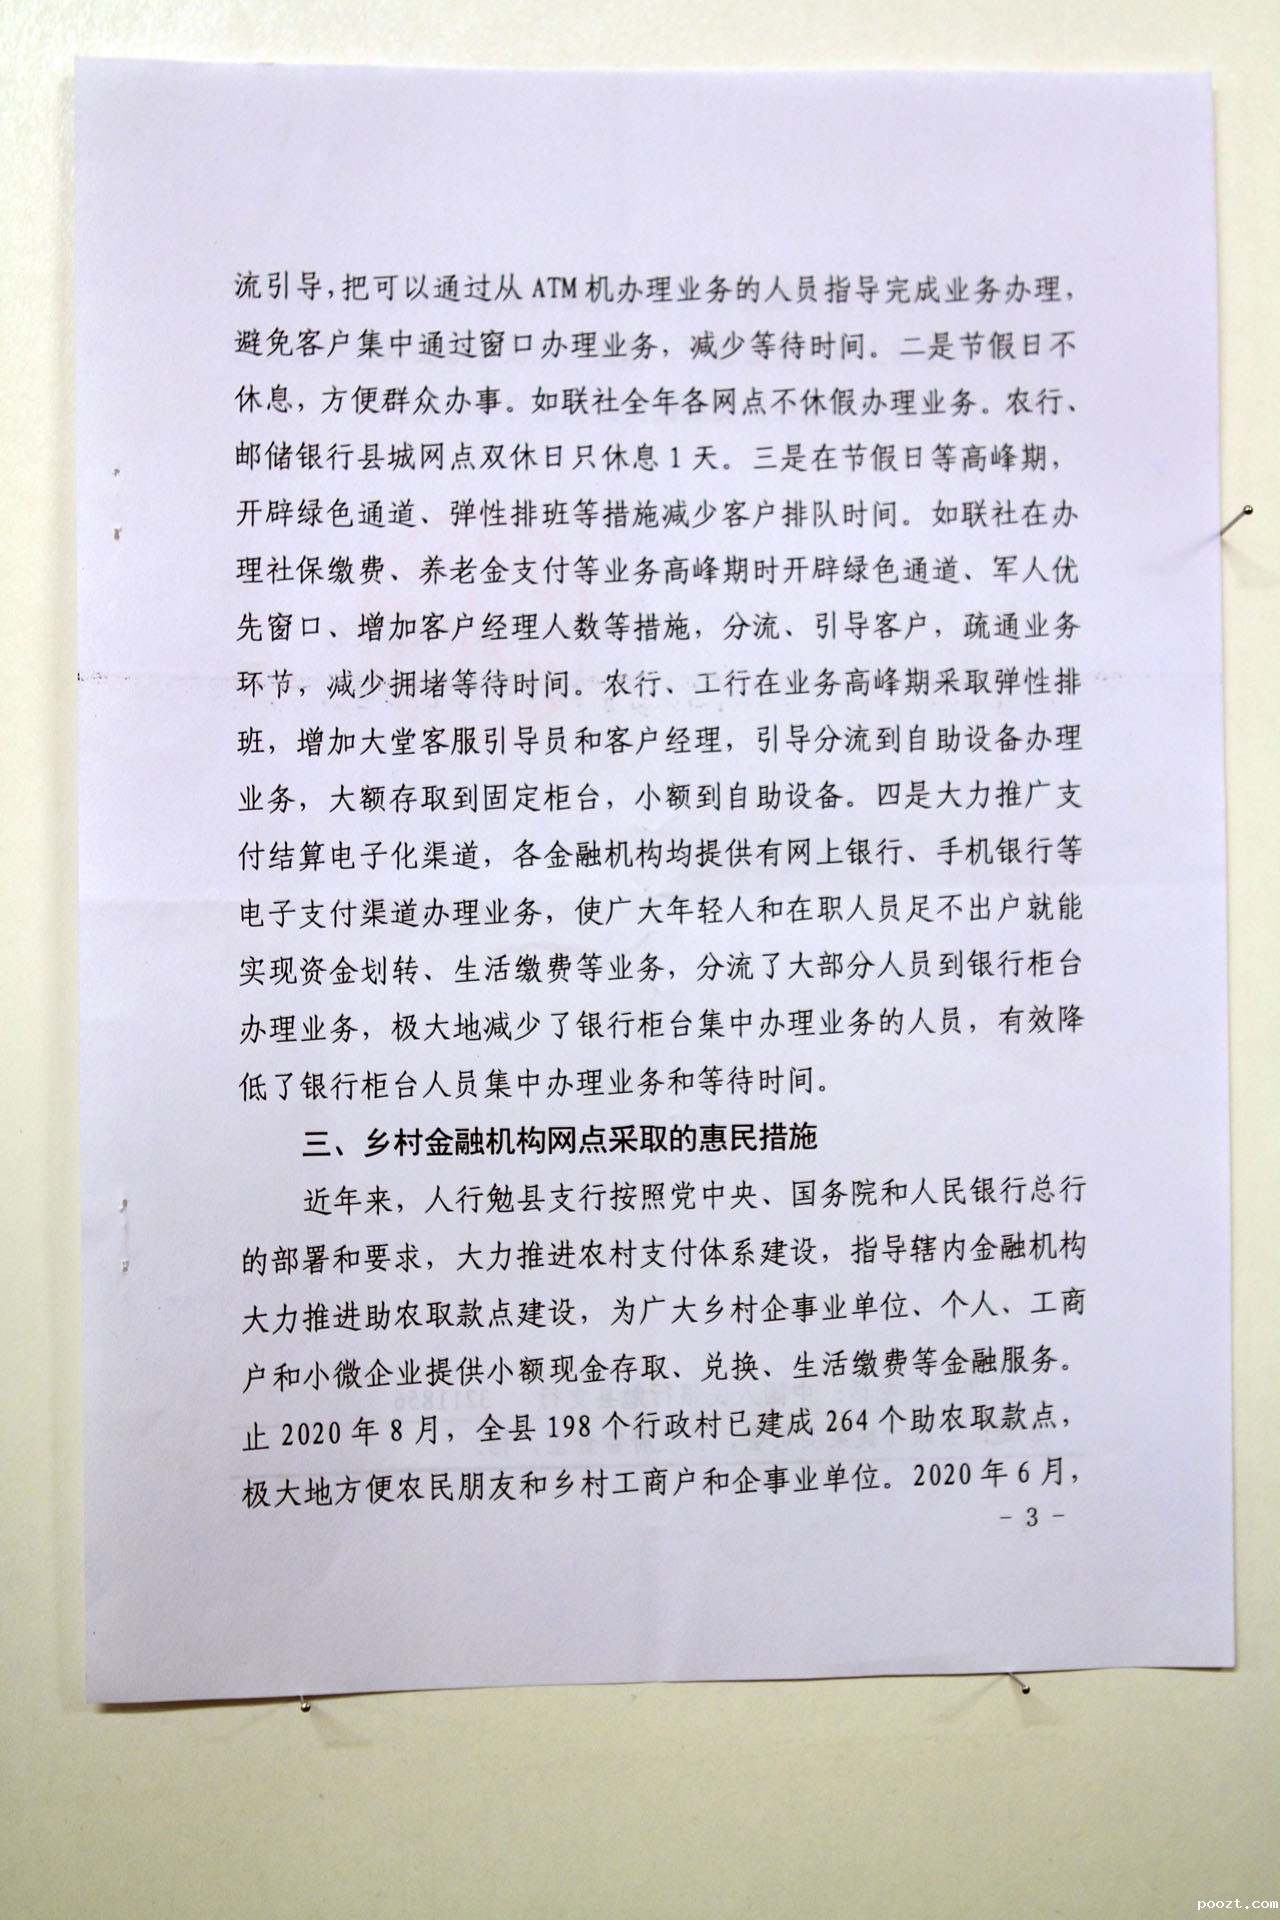 流引导,把可以通过从 ATM 机办理业务的人员指导完成业务办理，
避免客户集中通过窗口办理业务，减少等待时间。二是节假日不
休息，方便群众办事。如联社全年各网点不休假办理业务。农行、
邮储银行县城网点双休日只休息 1 天。三是在节假日等高峰期，
开辟绿色通道、弹性排班等措施减少客户排队时间。如联社在办
理社保缴费、养老金支付等业务高峰期时开辟绿色通道、军人优
先窗口、增加客户经理人数等措施，分流、引导客户，疏通业务
环节，减少拥堵等待时间。农行、工行在业务高峰期采取弹性排
班，增加大堂客服引导员和客户经理，引导分流到自助设备办理
业务，大额存取到固定柜台，小额到自助设备。四是大力推广支
付结算电子化渠道，各金融机构均提供有网上银行、手机银行等
电子支付渠道办理业务，使广大年轻人和在职人员足不出户就能
实现资金划转、生活缴费等业务，分流了大部分人员到银行柜台
办理业务，极大地减少了银行柜台集中办理业务的人员，有效降
低了银行柜台人员集中办理业务和等待时间。
三、乡村金融机构网点采取的惠民措施
近年来，人行勉县支行按照党中央、国务院和人民银行总行
的部署和要求，大力推进农村支付体系建设，指导辖内金融机构
大力推进助农取款点建设，为广大乡村企事业单位、个人、工商
户和小微企业提供小额现金存取、兑换、生活缴费等金融服务。
止 2020 年 8 月，全县 198 个行政村已建成 264 个助农取款点，
极大地方便农民朋友和乡村工商户和企事业单位。2020 年 6 月，
- 3 -
poozt.com